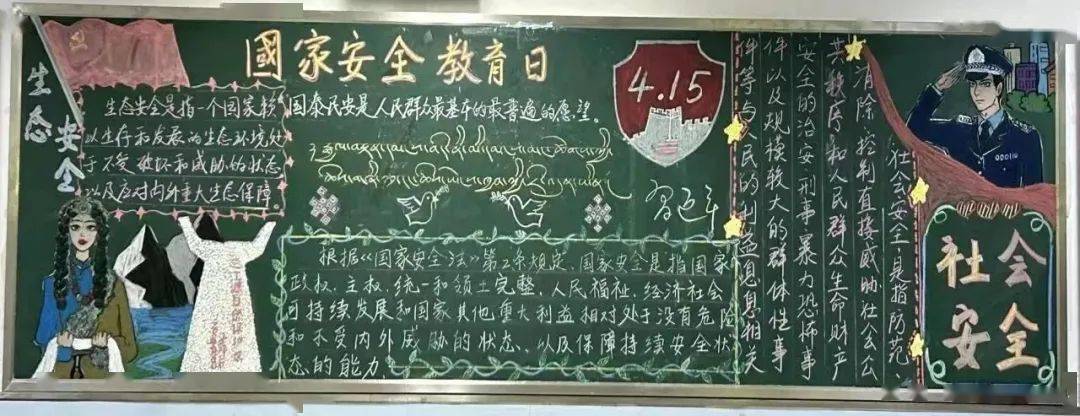 生态安全
生态安全是指一个国家赖
以生存和发展的生态环境处
于不受破坏和威胁的状态
以及应对内外重大生态保障。
三江源自然保护区
國家安全教育日
4.15
国泰民安是人民群众最基本的最普遍的愿望。
习近平
根据《国家安全法》第2条规定、国家安全是指国家
政权、主权、统一和领土完整、人民福祉、经济社会
可持续发展和国家其他重大利益相对处于没有危险
和不受内外威胁的状态、以及保障持续安全状
态的能力.
社会安全是指防范
消除控制直接威胁社会公
共秩序和人民群众生命财产
安全的治安刑事暴力恐怖事
件以及规模较大的群体性事
件等与人民的利益息息相关
000110
社会
安全